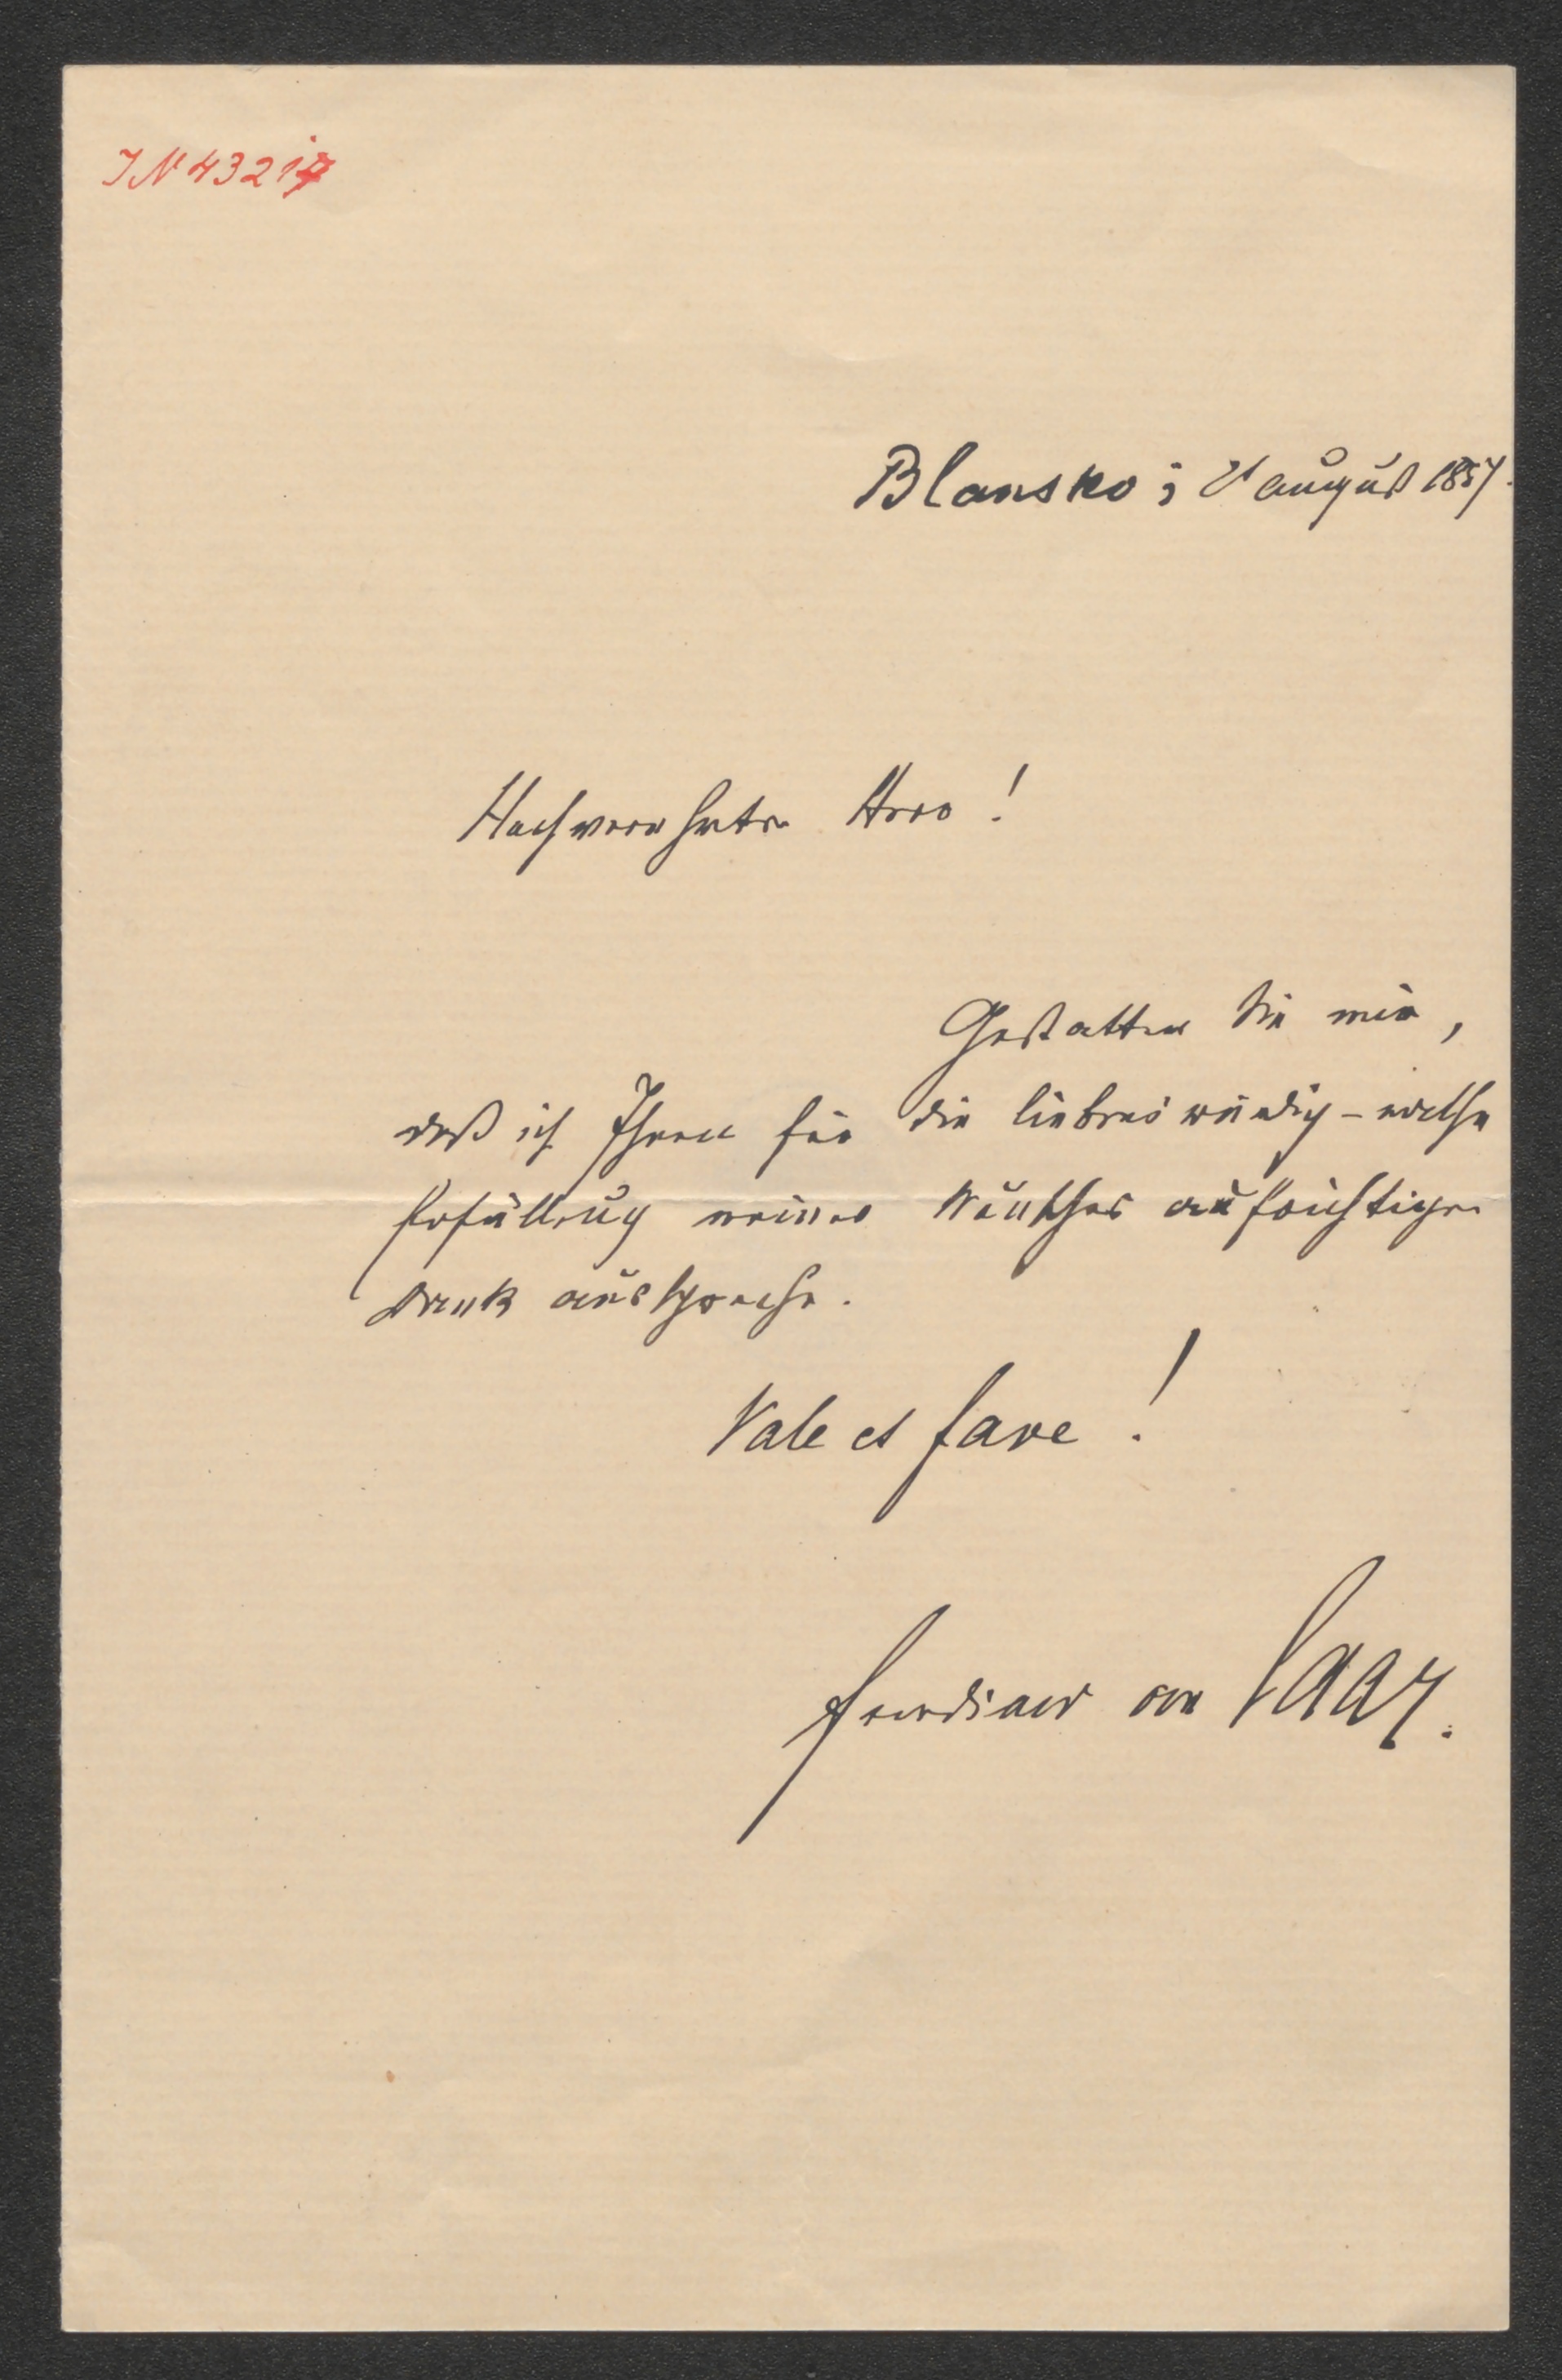 IN 43217
Blansko; August 1887.
Hochverehrter Herr!
Gestatten Sie mir,
daß ich Ihnen für die liebenswürdig-rasche
Erfüllung meines Wunsches aufrichtigen
Dank ausspreche.
Vale et fave!
Ferdinand von Saar.